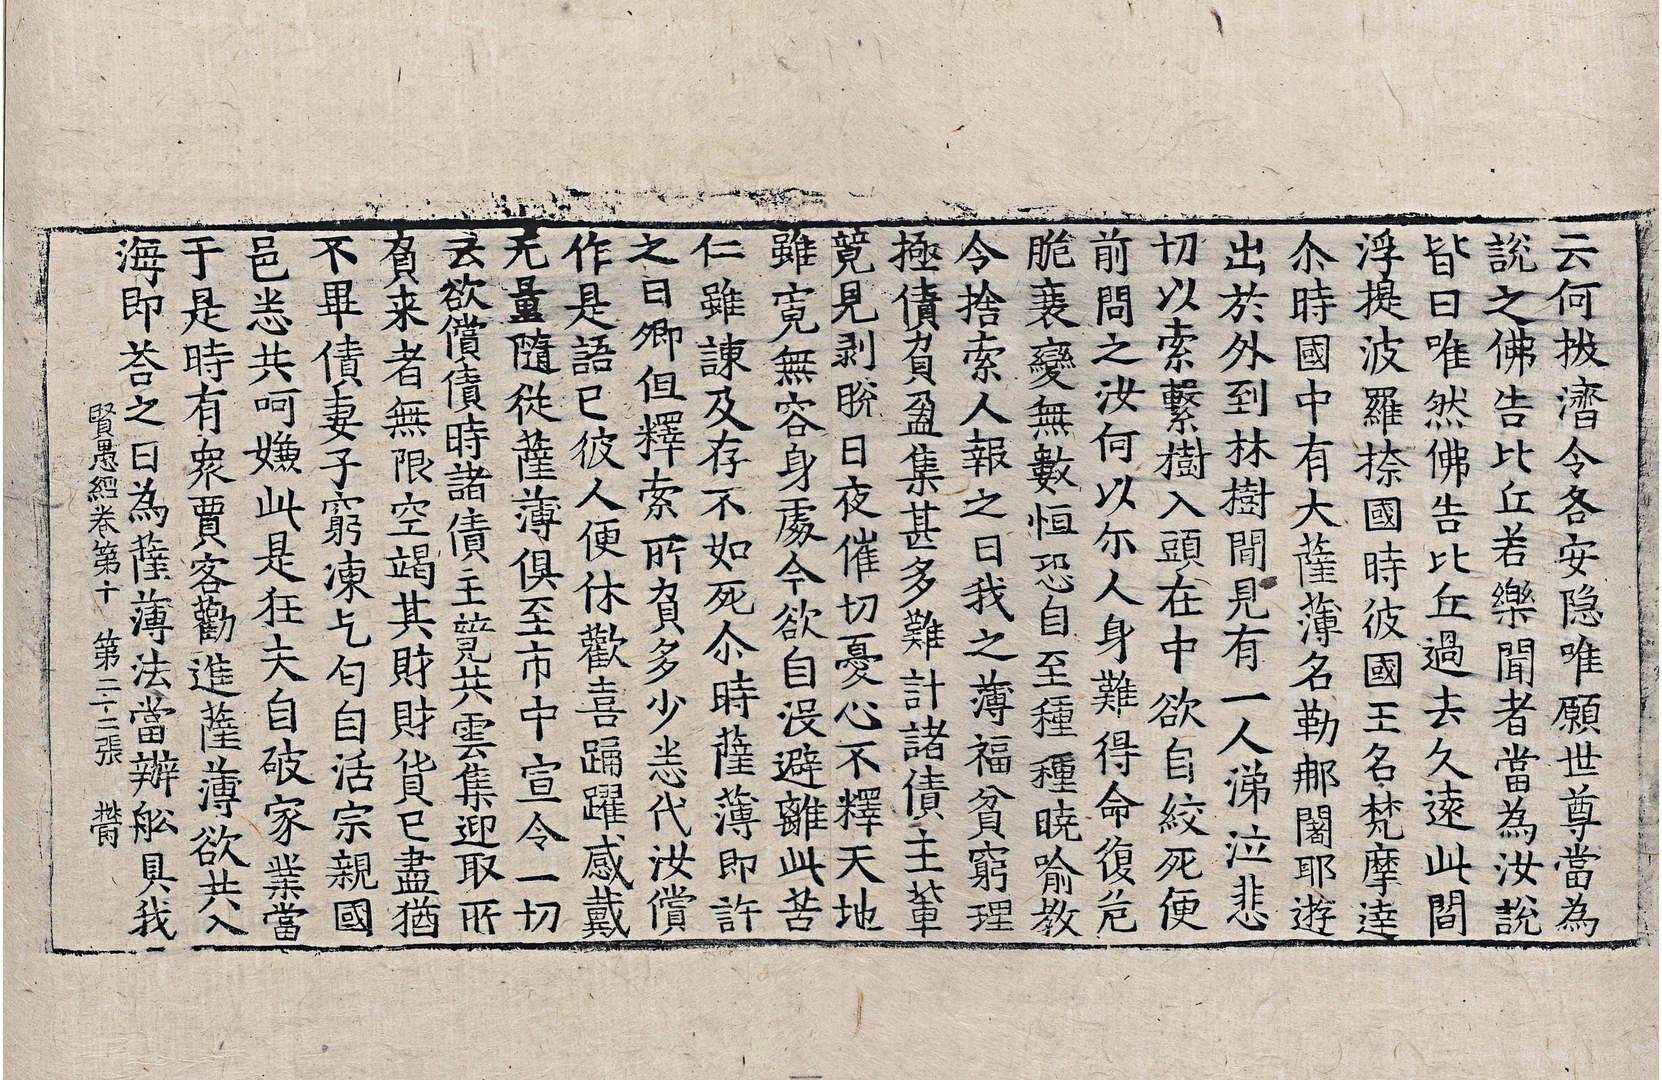 云何拔濟令各安隱唯願世尊當為
說之佛告比丘若樂聞者當為汝說
皆曰唯然佛告比丘過去久遠此閻
浮提波羅捺國時彼國王名梵摩達
尒時國中有大薩薄名勒那闍耶遊
出於外到林樹間見有一人涕泣悲
切以索繫樹入頭在中欲自絞死便
前問之汝何以尔人身難得命復危
脆衰變無數恒恐自至種種曉喻教
令捨索人報之曰我之薄福貧窮理
極債負盈集甚多難計諸債主輩
競見剥脫日夜催切憂心不釋天地
雖寬無容身處今欲自沒避離此苦
仁雖諫及存不如死尒時薩薄即許
之曰卿但釋索所負多少恙代汝償
作是語已彼人便休歡喜踊躍感戴
无量隨從薩薄俱至市中宣令一切
云欲償債時諸債主競共雲集迎取所
負来者無限空竭其財財貨已盡猶
不畢債妻子窮凍乞匃自活宗親國
邑恙共呵嫌此是狂夫自破家業當
于是時有衆賈客勸進薩薄欲共入
海即荅之曰為薩薄法當辦舩具我
賢愚經卷第十 第二二張